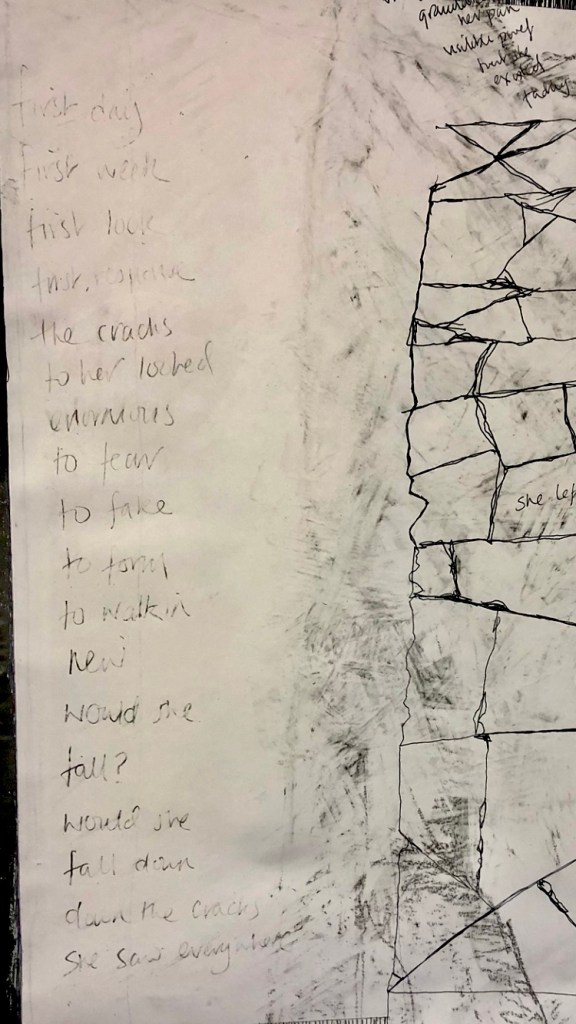 her pain
first day
first week
first look
first response
the cracks
to her looked
enormous
to fear
to fake
to form
to walk in
new
would she
fall?
would she
fall down
down the cracks
she saw everywhere
she lef